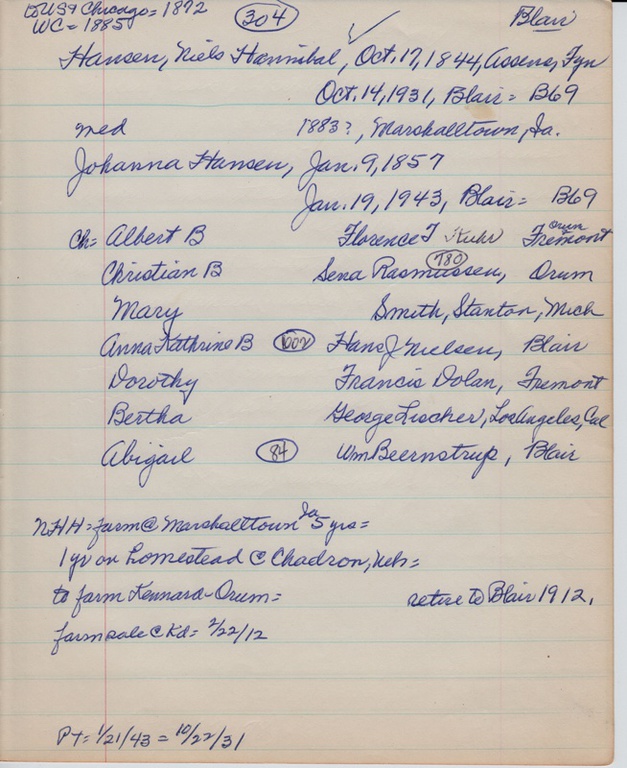 to USA Chicago = 1872 304 Blair
WC = 1885
Hansen, Niels Hannibal, Oct. 17, 1844, Assens, Fyn
Oct. 14, 1931, Blair = B69
med 1883?, Marshalltown, Ia.
Johanna Hansen, Jan. 9, 1857
Jan. 19, 1943, Blair = B69
Orum
ch = Albert B Florence T Kuhr Fremont
780
Christian B Sena Rasmussen, Orum
Mary Smith, Stanton, Mich
Anna Kathrine B Hans J Nielsen, Blair
Dorothy Francis Dolan, Fremont
Bertha George Lischer, Los Angeles, Cal
Abigail 84 Wm Beernstrup, Blair
NHH = farm @ Marshalltown Ia 5 yrs =
1 yr on homestead @ Chadron, Neb =
to farm Kennard-Orum = retire to Blair 1912.
farm sale @ Kd = 2/22/12
PT = 1/21/43 = 10/22/31